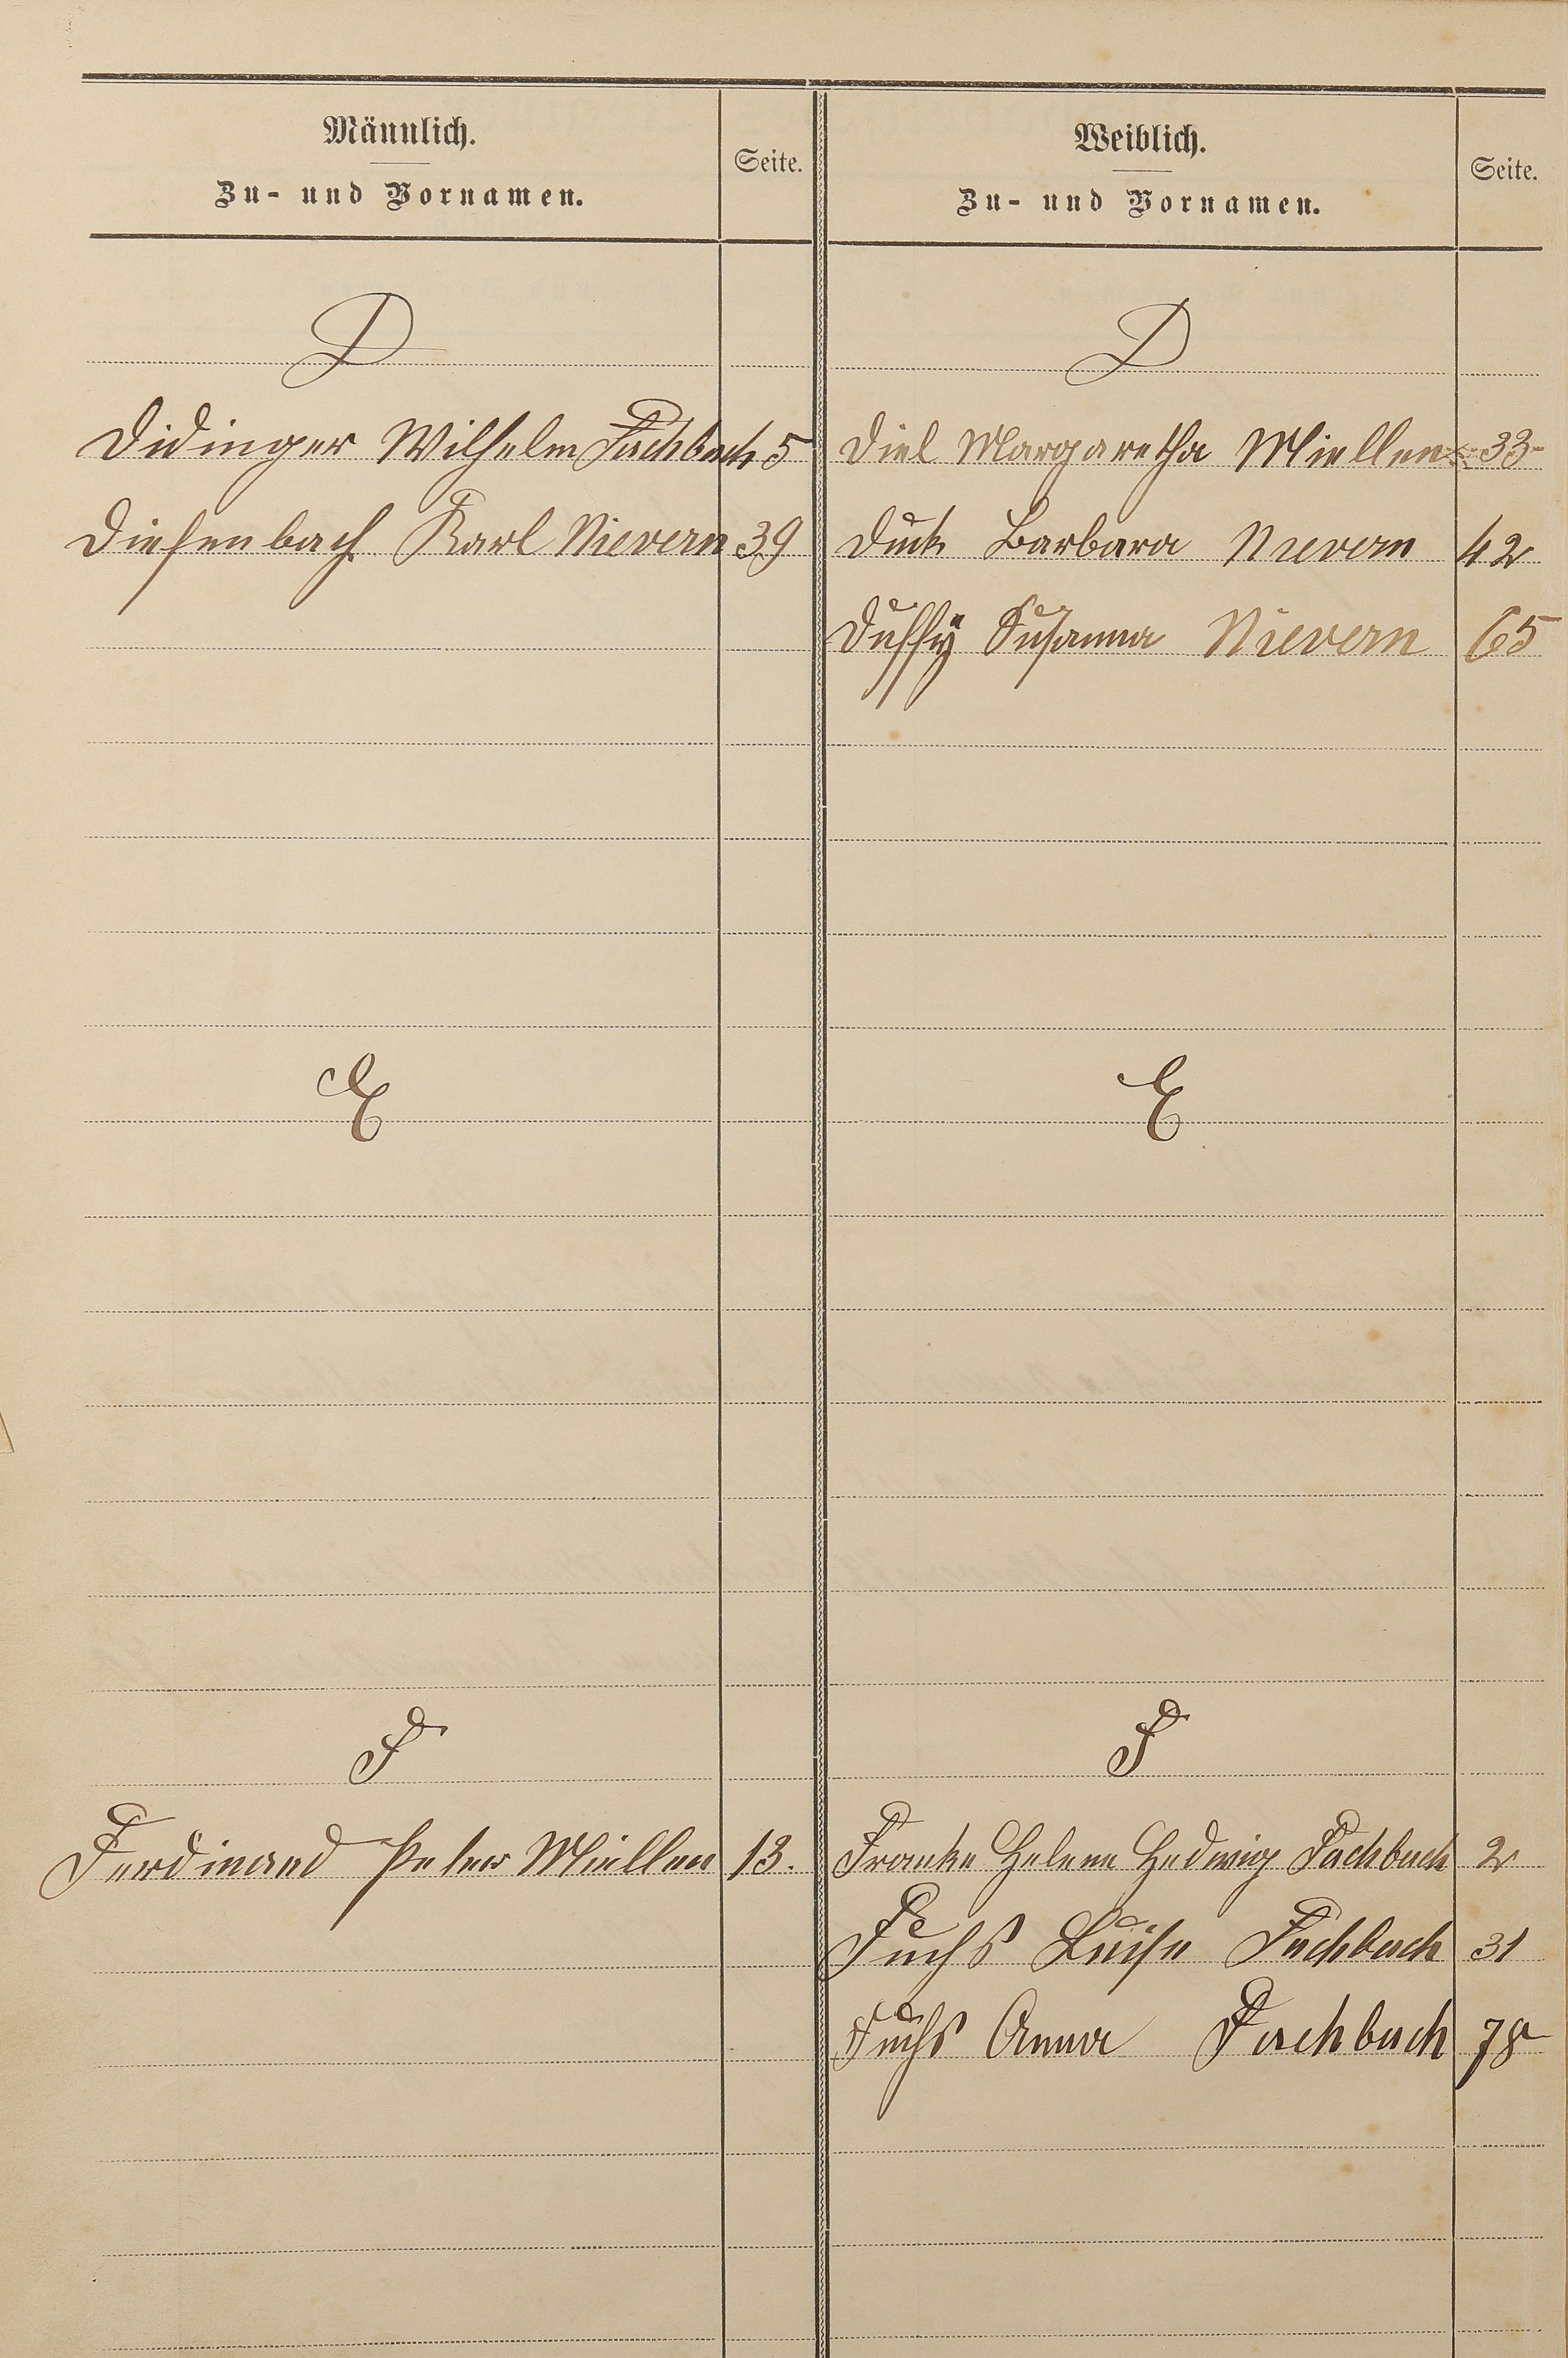 Männlich.
Zu- und Vornamen.
Seite.
D
Didinger Wilhelm Fachbach 5
Diefenbach Karl Nievern 39
E
F
Ferdinand Peter Miellen 13.
Weiblich.
Zu- und Vornamen.
Seite.
D
Diel Margaretha Miellen 33
Duck Barbara Nievern 42
Duffÿ Susanna Nievern 65
E
F
Franke Helene Hedwig Fachbach 2
Fuchs Luise Fachbach 31
Fuchs Anna Fachbach 78